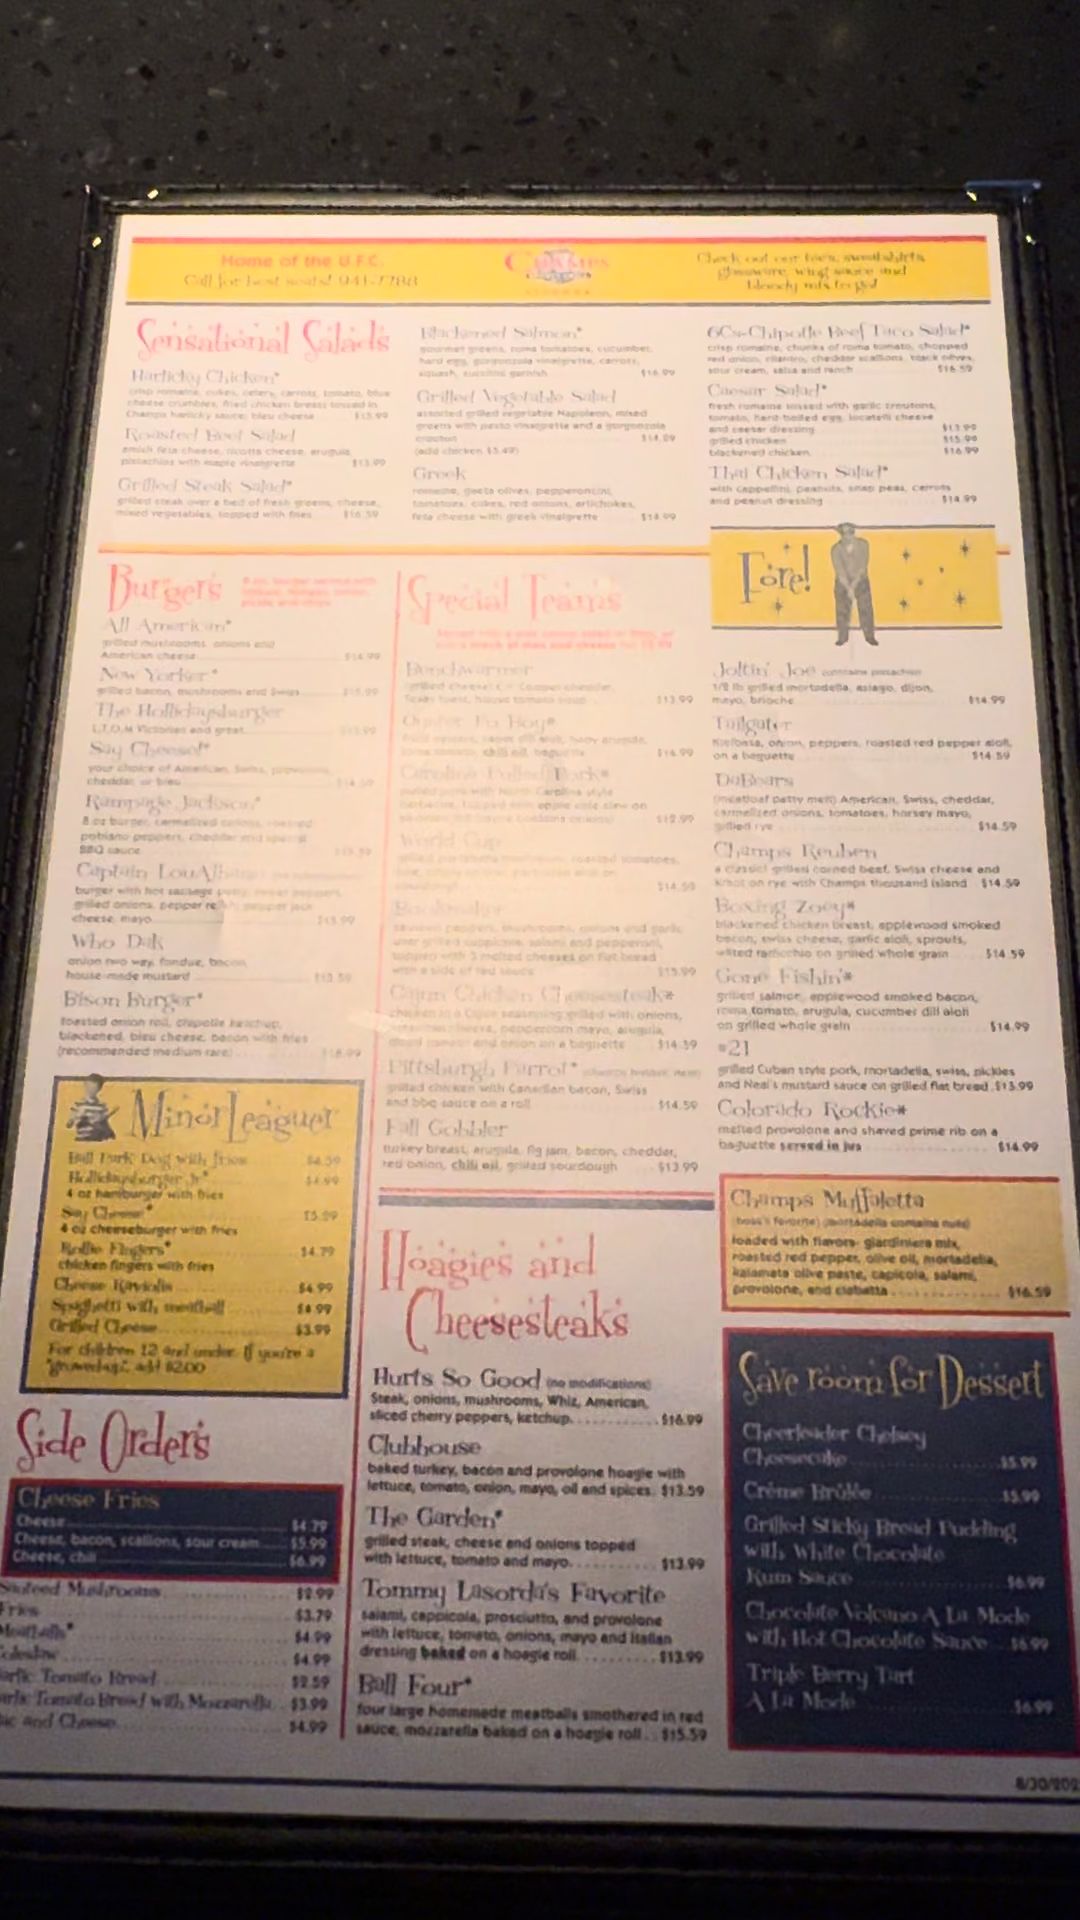 Home of the U.F.C.
Call for best seats! 941-7788
Champs
Check out our hats, sweatshirts,
glassware, wing sauce and
bloody mix to go!
Sensational Salads
Harlicky Chicken*
crisp romaine, cukes, celery, carrots, tomato, blue
cheese crumbles, fried chicken breast tossed in
Champs harlicky sauce, bleu cheese $15.99
Roasted Beet Salad
amish feta cheese, ricotta cheese, arugula,
pistachios with maple vinaigrette $13.99
Grilled Steak Salad*
grilled steak over a bed of fresh greens, cheese,
mixed vegetables, topped with fries $16.59
Blackened Salmon*
gourmet greens, roma tomatoes, cucumber,
hard egg, gorgonzola vinaigrette, carrots,
squash, zucchini garnish $16.99
Grilled Vegetable Salad
assorted grilled vegetable Napoleon, mixed
greens with pesto vinaigrette and a gorgonzola
crouton $14.99
(add chicken $5.49)
Greek
romaine, gaeta olives, pepperoncini,
tomatoes, cukes, red onions, artichokes,
feta cheese with greek vinaigrette $14.99
6Cs-Chipotle Beef Taco Salad*
crisp romaine, chunks of roma tomato, chopped
red onion, cilantro, cheddar scallions, black olives,
sour cream, salsa and ranch $16.59
Caesar Salad*
fresh romaine tossed with garlic croutons,
tomato, hard boiled egg, locatelli cheese
and caesar dressing $13.99
grilled chicken $15.99
blackened chicken $16.99
Thai Chicken Salad*
with cappellini, peanuts, snap peas, carrots
and peanut dressing $14.99
Burgers
All American*
grilled mushrooms, onions and
American cheese $14.99
New Yorker*
grilled bacon, mushrooms and Swiss
The Hollidaysburger
L,T,O,M Victorias and great
Say Cheese!*
your choice of American, Swiss, provolone,
cheddar, or bleu $14.59
Rampage Jackson*
8 oz burger, carmelized onions, roasted
poblano peppers, cheddar and special
BBQ sauce
Captain LouAlbano
burger with hot sausage patty, sweet peppers,
grilled onions, pepper relish, pepper jack
cheese, mayo $15.99
Who Dat
onion two way, fondue, bacon,
house-made mustard $13.59
Bison Burger*
toasted onion roll, chipotle ketchup,
blackened, bleu cheese, bacon with fries
(recommended medium rare) $18.99
Special Teams
Benchwarmer
(grilled cheese) Cooper cheddar,
Texas toast, house tomato soup $13.99
Oyster Po Boy*
fried oysters, caper dill aioli, baby arugula,
roma tomato, chili oil, baguette $16.99
Carolina Pulled Pork*
pulled pork with North Carolina style
barbecue, topped with apple cole slaw on
$12.99
World Cup
grilled portabella mushroom, roasted tomatoes,
$14.59
Bookmaker
sauteed peppers, mushrooms, onions and garlic
over grilled cappicola, salami and pepperoni,
topped with 3 melted cheeses on flat bread
with a side of red sauce $15.99
Cajun Chicken Cheesesteak*
chicken in a Cajun seasoning grilled with onions,
cheese, peppercorn mayo, arugula,
sliced tomato and onion on a baguette $14.59
Pittsburgh Parrot*
grilled chicken with Canadian bacon, Swiss
and bbq sauce on a roll $14.59
Fall Gobbler
turkey breast, arugula, fig jam, bacon, cheddar,
red onion, chili oil, grilled sourdough $13.99
Fore!
Joltin' Joe contains pistachios
1/2 lb grilled mortadella, asiago, dijon,
mayo, brioche $14.99
Tailgater
kielbasa, onion, peppers, roasted red pepper aioli,
on a baguette $14.59
DaBears
(meatloaf patty melt) American, Swiss, cheddar,
carmelized onions, tomatoes, horsey mayo,
grilled rye $14.59
Champs Reuben
a classic! grilled corned beef, Swiss cheese and
kraut on rye with Champs thousand island $14.59
Boxing Zoey*
blackened chicken breast, applewood smoked
bacon, swiss cheese, garlic aioli, sprouts,
wilted radicchio on grilled whole grain $14.59
Gone Fishin'*
grilled salmon, applewood smoked bacon,
roma tomato, arugula, cucumber dill aioli
on grilled whole grain $14.99
#21
grilled Cuban style pork, mortadella, swiss, pickles
and Neal's mustard sauce on grilled flat bread $13.99
Colorado Rockie*
melted provolone and shaved prime rib on a
baguette served in jus $14.99
Minor Leaguer
Ball Park Dog with fries $4.59
Hollidaysburger Jr* $4.99
4 oz hamburger with fries
Say Cheese* $5.99
4 oz cheeseburger with fries
Rollie Fingers* $4.79
chicken fingers with fries
Cheese Raviolis $4.99
Spaghetti with meatball $4.99
Grilled Cheese $3.99
For children 12 and under. If you're a
"grownup", add $2.00
Side Orders
Cheese Fries
Cheese $4.79
Cheese, bacon, scallions, sour cream $5.99
Cheese, chili $6.99
Mushrooms $2.99
Fries $3.79
Meatballs* $4.99
Coleslaw $4.99
Garlic Tomato Bread $2.59
Garlic Tomato Bread with Mozzarella $3.99
Mac and Cheese $4.99
Hoagies and
Cheesesteaks
Hurts So Good (no modifications)
Steak, onions, mushrooms, Whiz, American,
sliced cherry peppers, ketchup $16.99
Clubhouse
baked turkey, bacon and provolone hoagie with
lettuce, tomato, onion, mayo, oil and spices $13.59
The Garden*
grilled steak, cheese and onions topped
with lettuce, tomato and mayo $13.99
Tommy Lasorda's Favorite
salami, cappicola, prosciutto, and provolone
with lettuce, tomato, onions, mayo and Italian
dressing baked on a hoagie roll $13.99
Ball Four*
four large homemade meatballs smothered in red
sauce, mozzarella baked on a hoagie roll $15.59
Champs Muffaletta
(boss's favorite) (mortadella contains nuts)
loaded with flavors- giardiniera mix,
roasted red pepper, olive oil, mortadella,
kalamata olive paste, capicola, salami,
provolone, and ciabatta $16.59
Save room for Dessert
Cheerleader Chelsey
Cheesecake $5.99
Crème Brûlée $5.99
Grilled Sticky Bread Pudding
with White Chocolate
Rum Sauce $6.99
Chocolate Volcano A La Mode
with Hot Chocolate Sauce $6.99
Triple Berry Tart
A La Mode $6.99
8/30/202